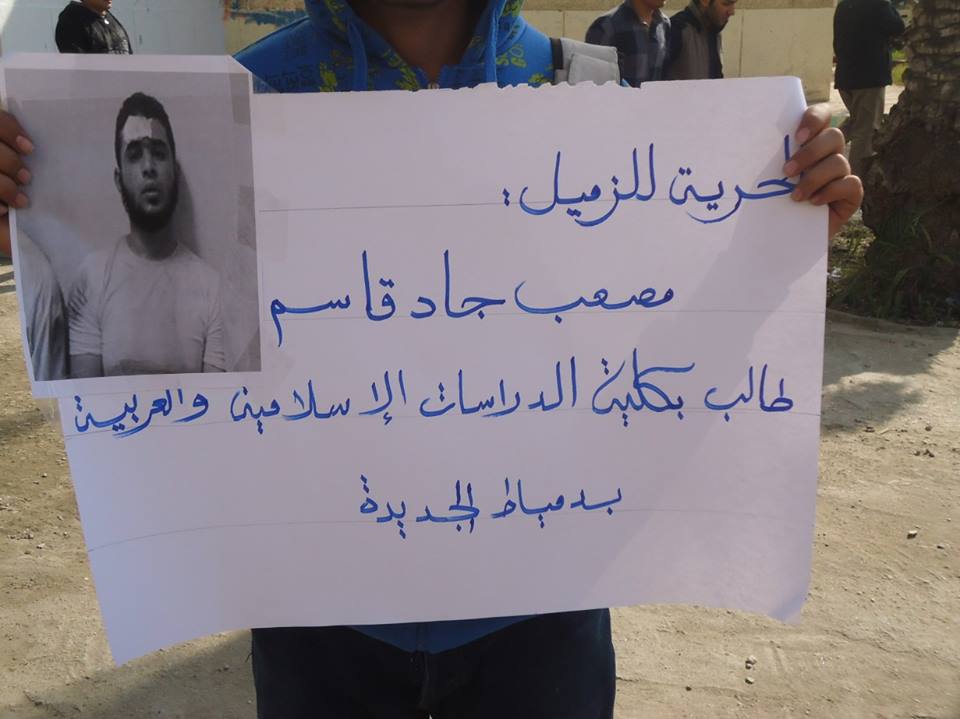 الحرية للزميل:
مصعب جاد قاسم
طالب بكلية الدراسات الإسلامية والعربية
بدمياط الجديدة